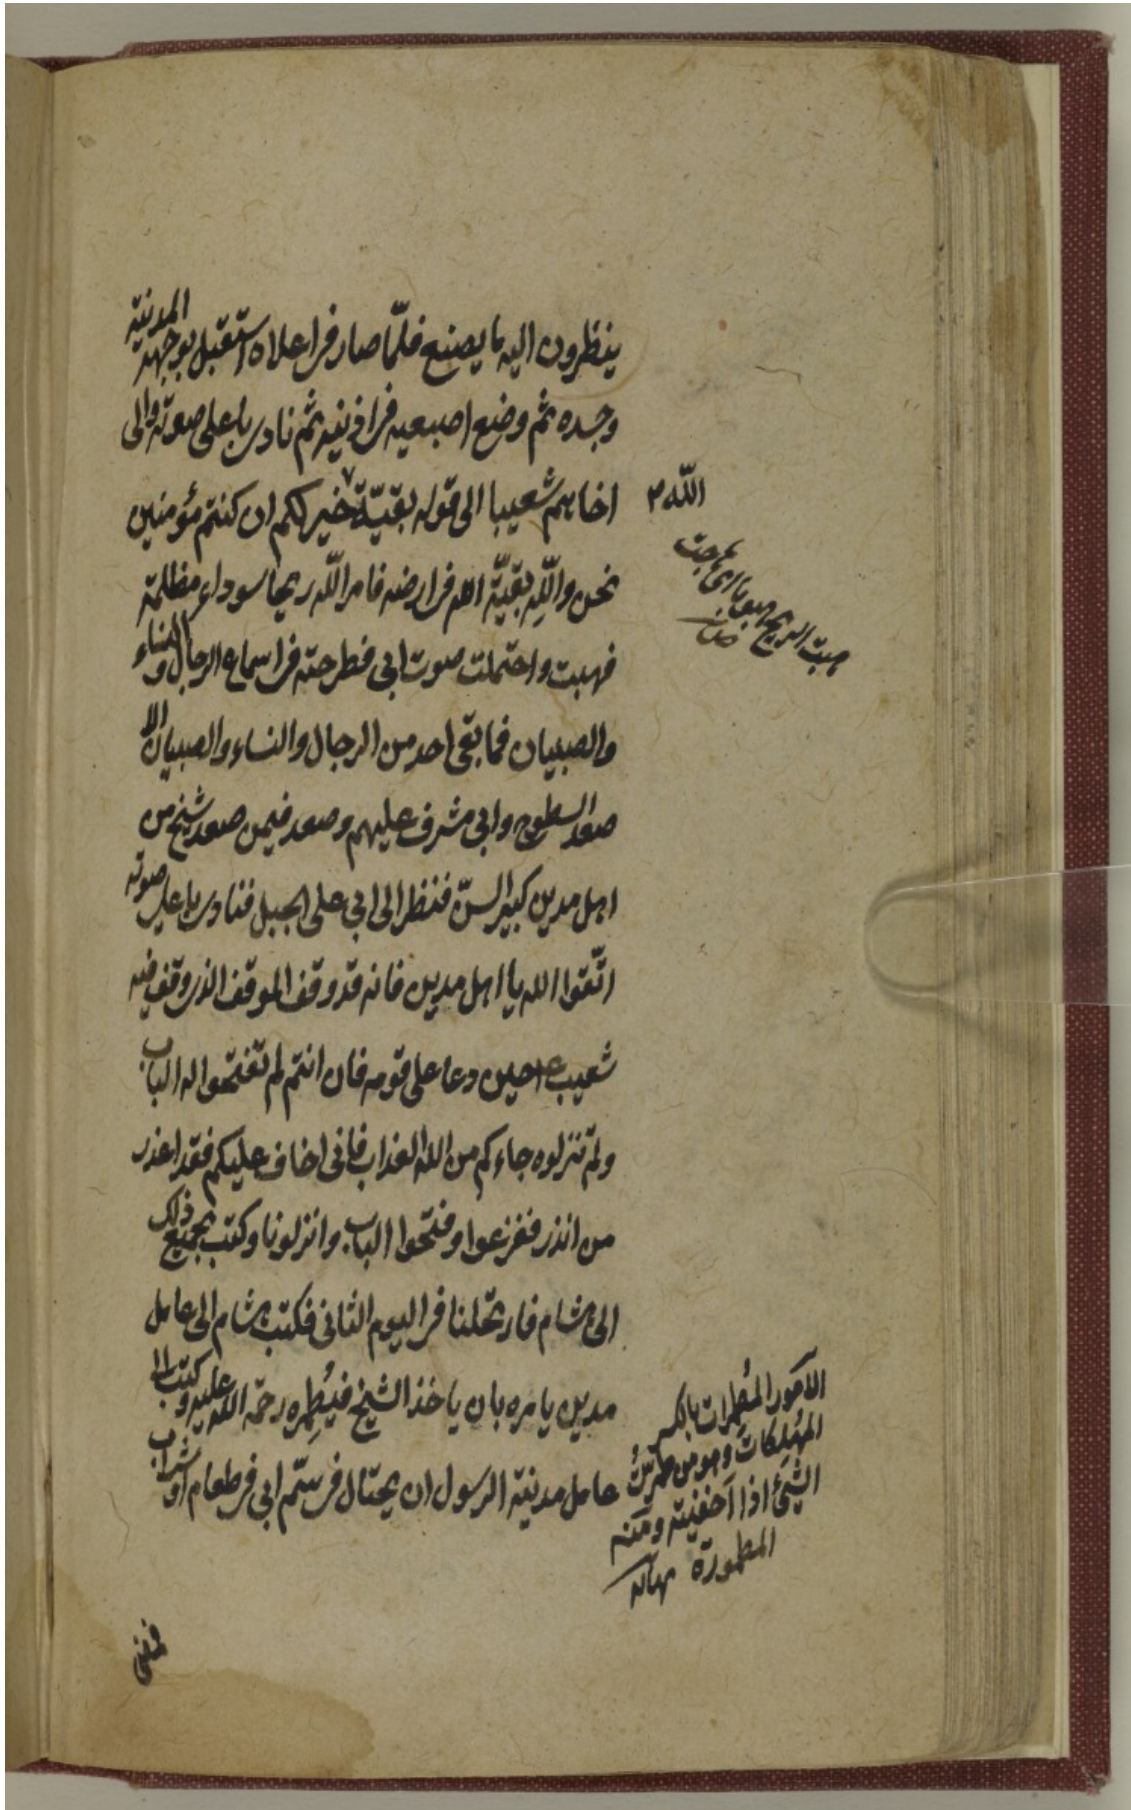 ينظرون اليه ما يصنع فلمّا صار فى اعلاه استقبل بوجهه المدينة
وجسده ثم وضع اصبعيه فى اذنيه ثم نادى باعلى صوته والى
اخاهم شعيبا الى قوله بقيّة خير لكم ان كنتم مؤمنين
الله
نحن والله بقيّة الله فى ارضه فامر الله ريحا سوداء مظلمة
هبت الريح هبوبا اى هاجت
صحاح
فهبت واحتملت صوت ابى فطرحته فى اسماع الرجال والنساء
والصبيان فما بقى احد من الرجال والنساء والصبيان الا
صعد السطوح وابى مشرف عليهم وصعد فيمن صعد شيخ من
اهل مدين كبير السنّ فنظر الى ابى على الجبل فنادى باعلى صوته
اتّقوا الله يا اهل مدين فانه قد وقف الموقف الذى وقف فيه
شعيب ع حين دعا على قومه فان انتم لم تفتحوا له الباب
ولم تنزلوه جاءكم من الله العذاب فانى اخاف عليكم فقد اعذر
من انذر ففزعوا وفتحوا الباب وانزلونا وكتب بجميع ذلك
الى هشام فارتحلنا فى اليوم الثانى فكتب هشام الى عامل
مدين يامره بان ياخذ الشيخ فيُطمِره رحمة الله عليه وكتب الى
عامل مدينة الرسول ان يحتال فى سّم ابى فى طعام او شراب
الامور المُطمِرات بالكسر
المُهلِكات وهو من طمرتُ
الشئ اذا اخفيته ومنه
المطمورة نهاية
فمضى